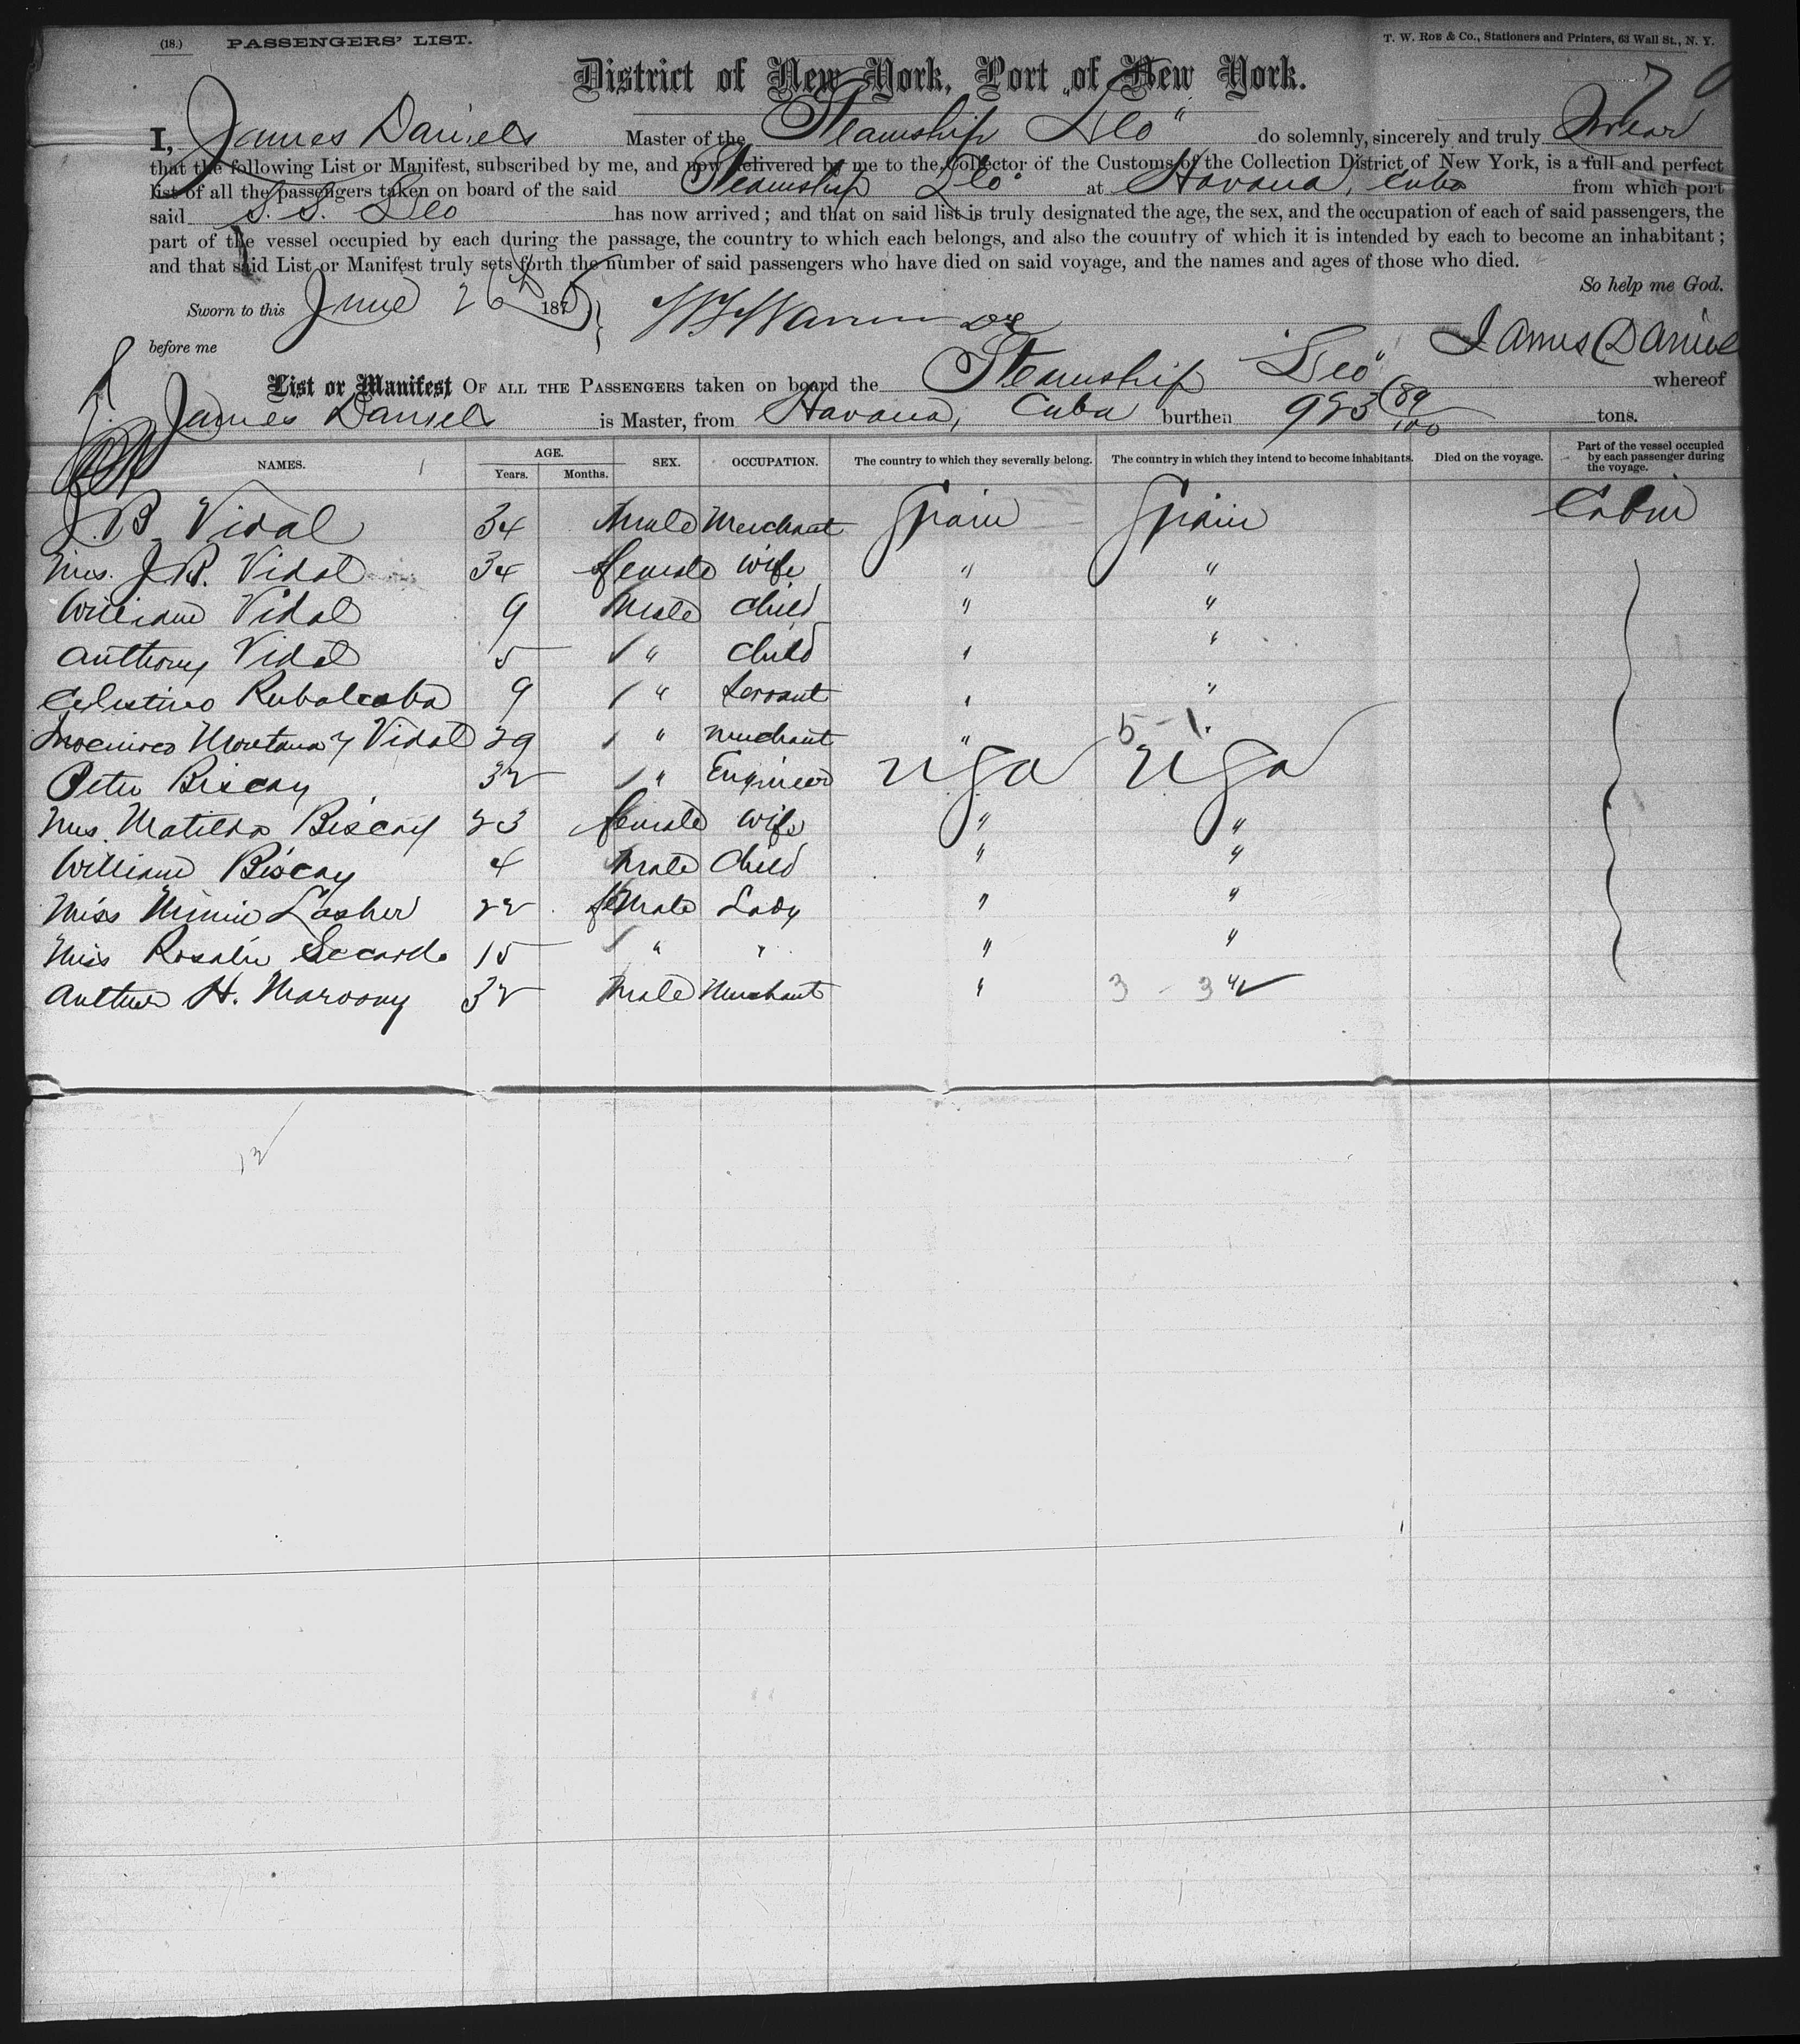 (18.) PASSENGERS' LIST. T. W. ROE & Co., Stationers and Printers, 63 Wall St., N. Y.
District of New York, Port of New York.
I, James Daniels Master of the Steamship "Leo" do solemnly, sincerely and truly swear
that the following List or Manifest, subscribed by me, and now delivered by me to the Collector of the Customs of the Collection District of New York, is a full and perfect
list of all the passengers taken on board of the said Steamship Leo at Havana, Cuba from which port
said S. S. Leo has now arrived; and that on said list is truly designated the age, the sex, and the occupation of each of said passengers, the
part of the vessel occupied by each during the passage, the country to which each belongs, and also the country of which it is intended by each to become an inhabitant;
and that said List or Manifest truly sets forth the number of said passengers who have died on said voyage, and the names and ages of those who died.
So help me God.
Sworn to this June 26th 1875
before me James Daniels
List or Manifest OF ALL THE PASSENGERS taken on board the Steamship "Leo" whereof
James Daniels is Master, from Havana, Cuba burthen 89/100 tons.
NAMES. AGE. Years. Months. SEX. OCCUPATION. The country to which they severally belong. The country in which they intend to become inhabitants. Died on the voyage. Part of the vessel occupied by each passenger during the voyage.
J. B. Vidal 34 Male Merchant Spain Spain Cabin
Mrs. J. B. Vidal 34 female wife " "
William Vidal 9 Male child " "
Anthony Vidal 5 " child " "
Celestino Rubalcaba 9 " Servant " "
Montana y Vidal 29 " Merchant " "
5 - 1.
Peter Biscay 32 " Engineer USA USA
Mrs. Matilda Biscay 23 female wife " "
William Biscay 4 Male Child " "
Miss Minnie Lasher 22 female Lady " "
Miss Rosalie 15 " " " "
Arthur H. 32 Male Merchant " 3 - 3 "
12